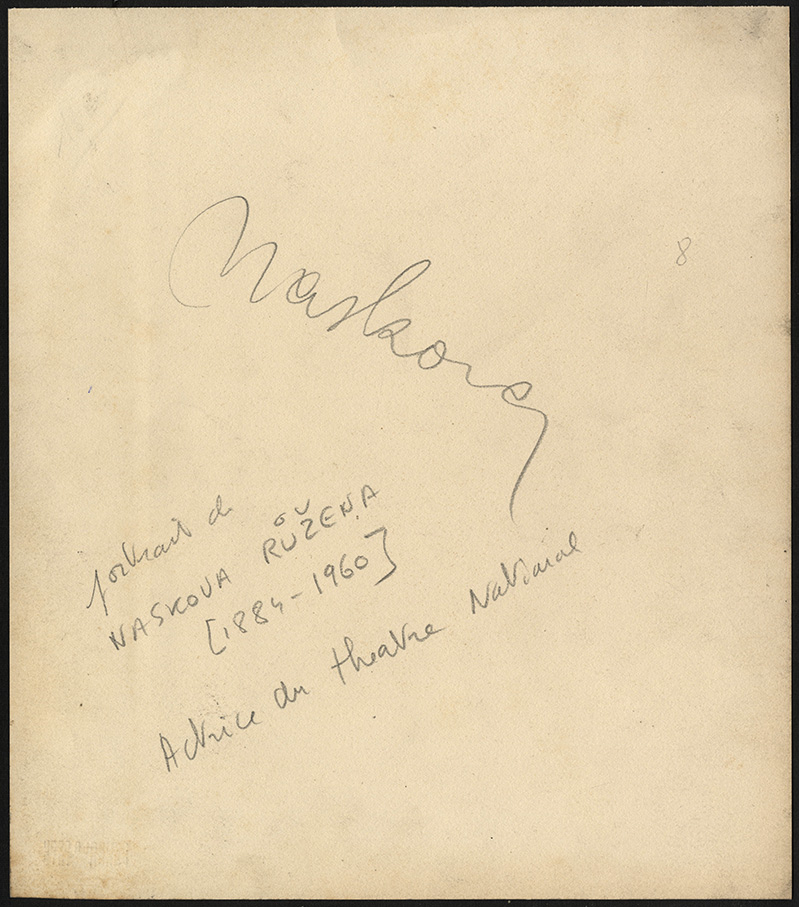 Naskova
8
portrait de
NASKOVA RŮŽENA
[1884-1960]
Actrice du theatre National